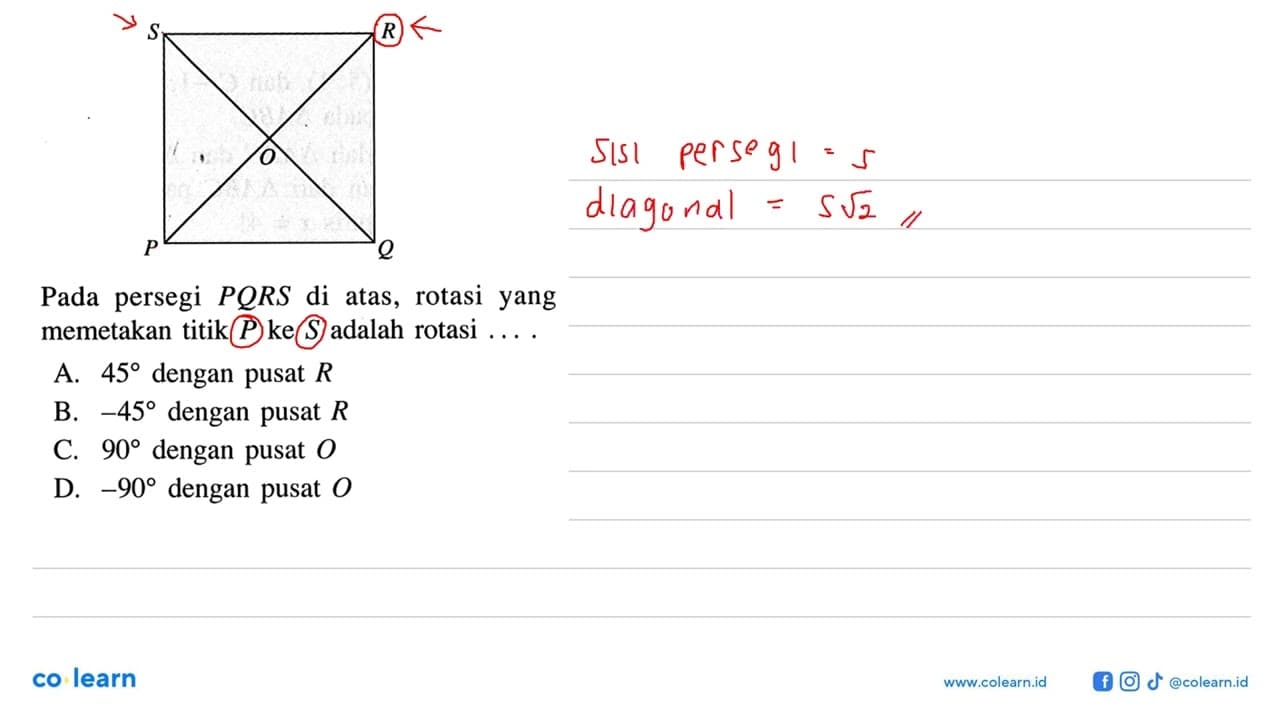 S R
O
P Q
sisi persegi = s
diagonal = s√2 //
Pada persegi PQRS di atas, rotasi yang
memetakan titik P ke S adalah rotasi . . . .
A. 45° dengan pusat R
B. –45° dengan pusat R
C. 90° dengan pusat O
D. –90° dengan pusat O
co learn
www.colearn.id
@colearn.id